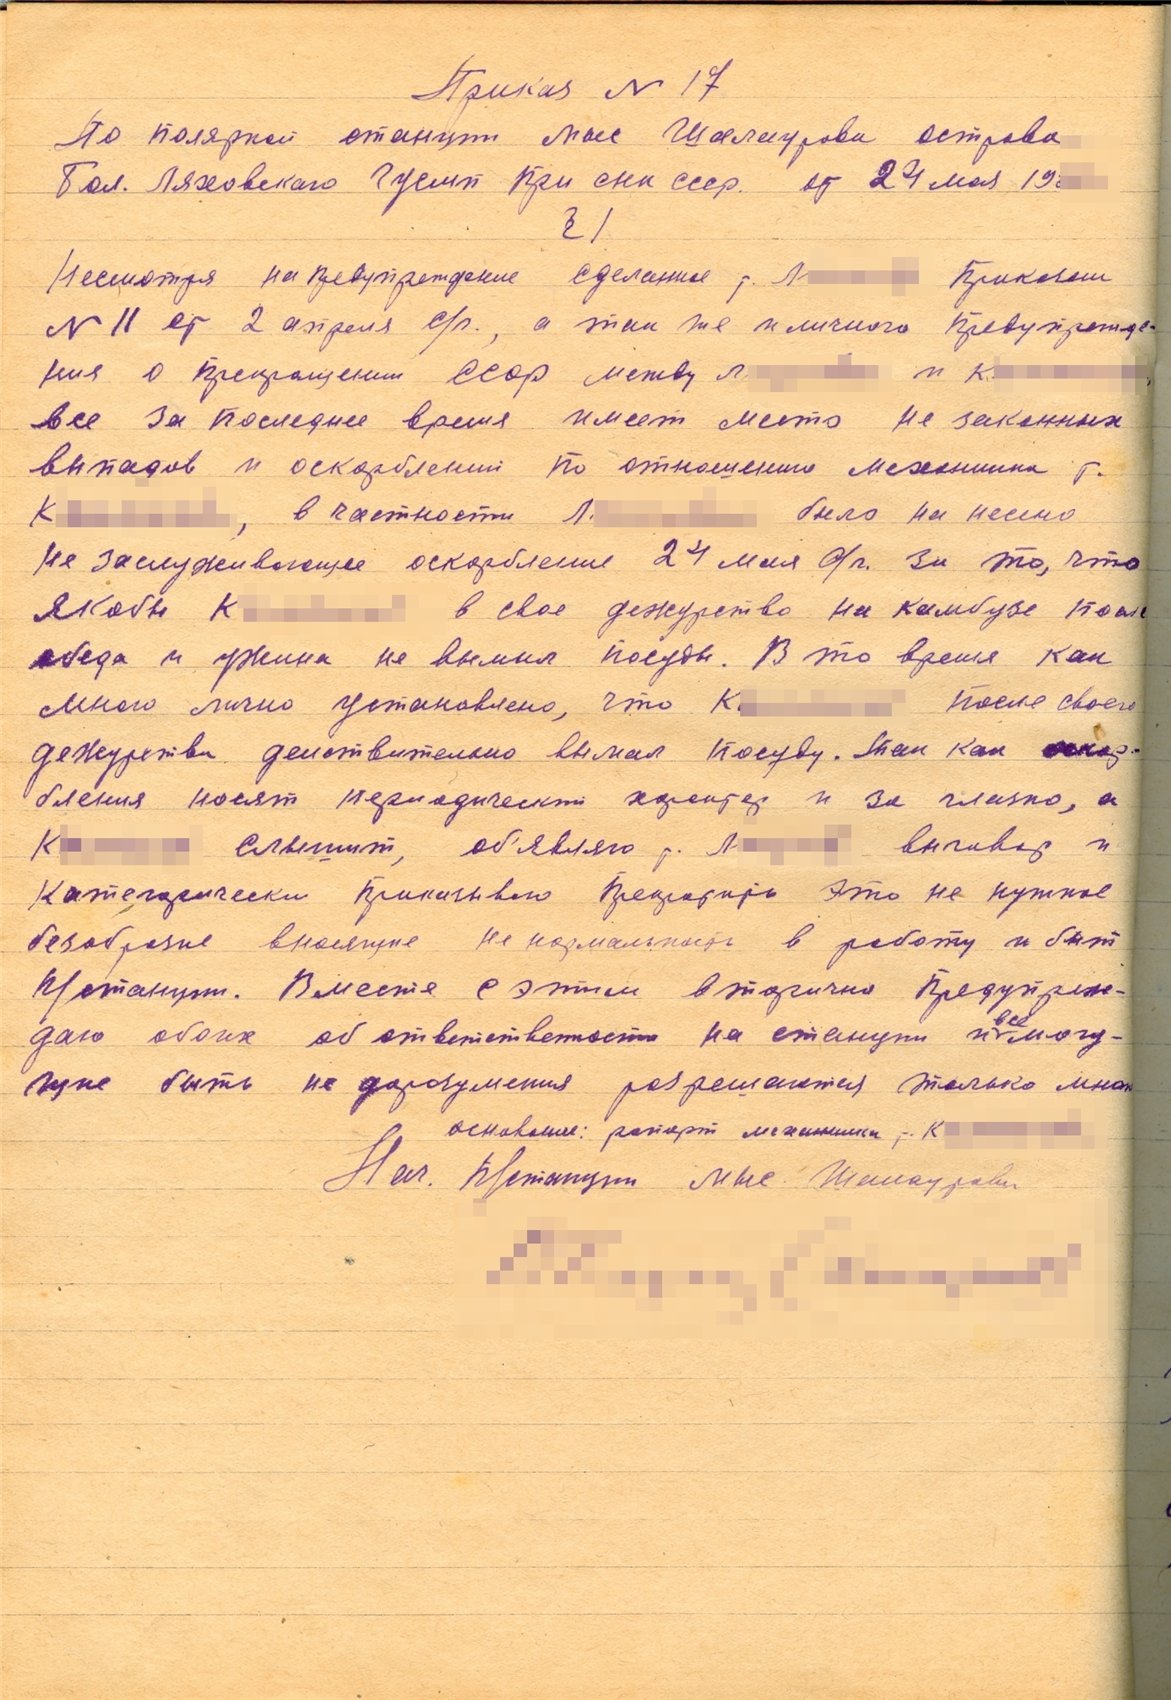 Приказ N 17
По полярной станции мыс Шалаурова острова
Бол. Ляховского Гусмп При снк ссср. от 24 мая 19
§ 1
Несмотря на предупреждение сделанное т. Л Приказом
N 11 от 2 апреля с/г., а так же и личного предупрежде-
ния о прекращении ссор между Л и К
все за последнее время имеет место не законных
выпадов и оскорблений по отношению механика т.
К, в частности Л. было на несено
не заслуживающее оскорбление 24 мая с/г. за то, что
якобы К в свое дежурство на камбузе после
обеда и ужина не вымыл посуды. В то время как
мною лично установлено, что К после своего
дежурства действительно вымыл посуду. Так как оскор-
бления носят периодический характер и за глазно, а
К слышит, об'являю т. Л выговор и
категорически приказываю прекратить это не нужное
безобразие вносящие не нормальность в работу и быт
п/станции. Вместе с этим вторично предупреж-
даю обоих об ответственности на станции и все могу-
щие быть не доразумения разрешаются только мною
основание: рапорт механика т. К
Нач. п/станции мыс Шалаурова